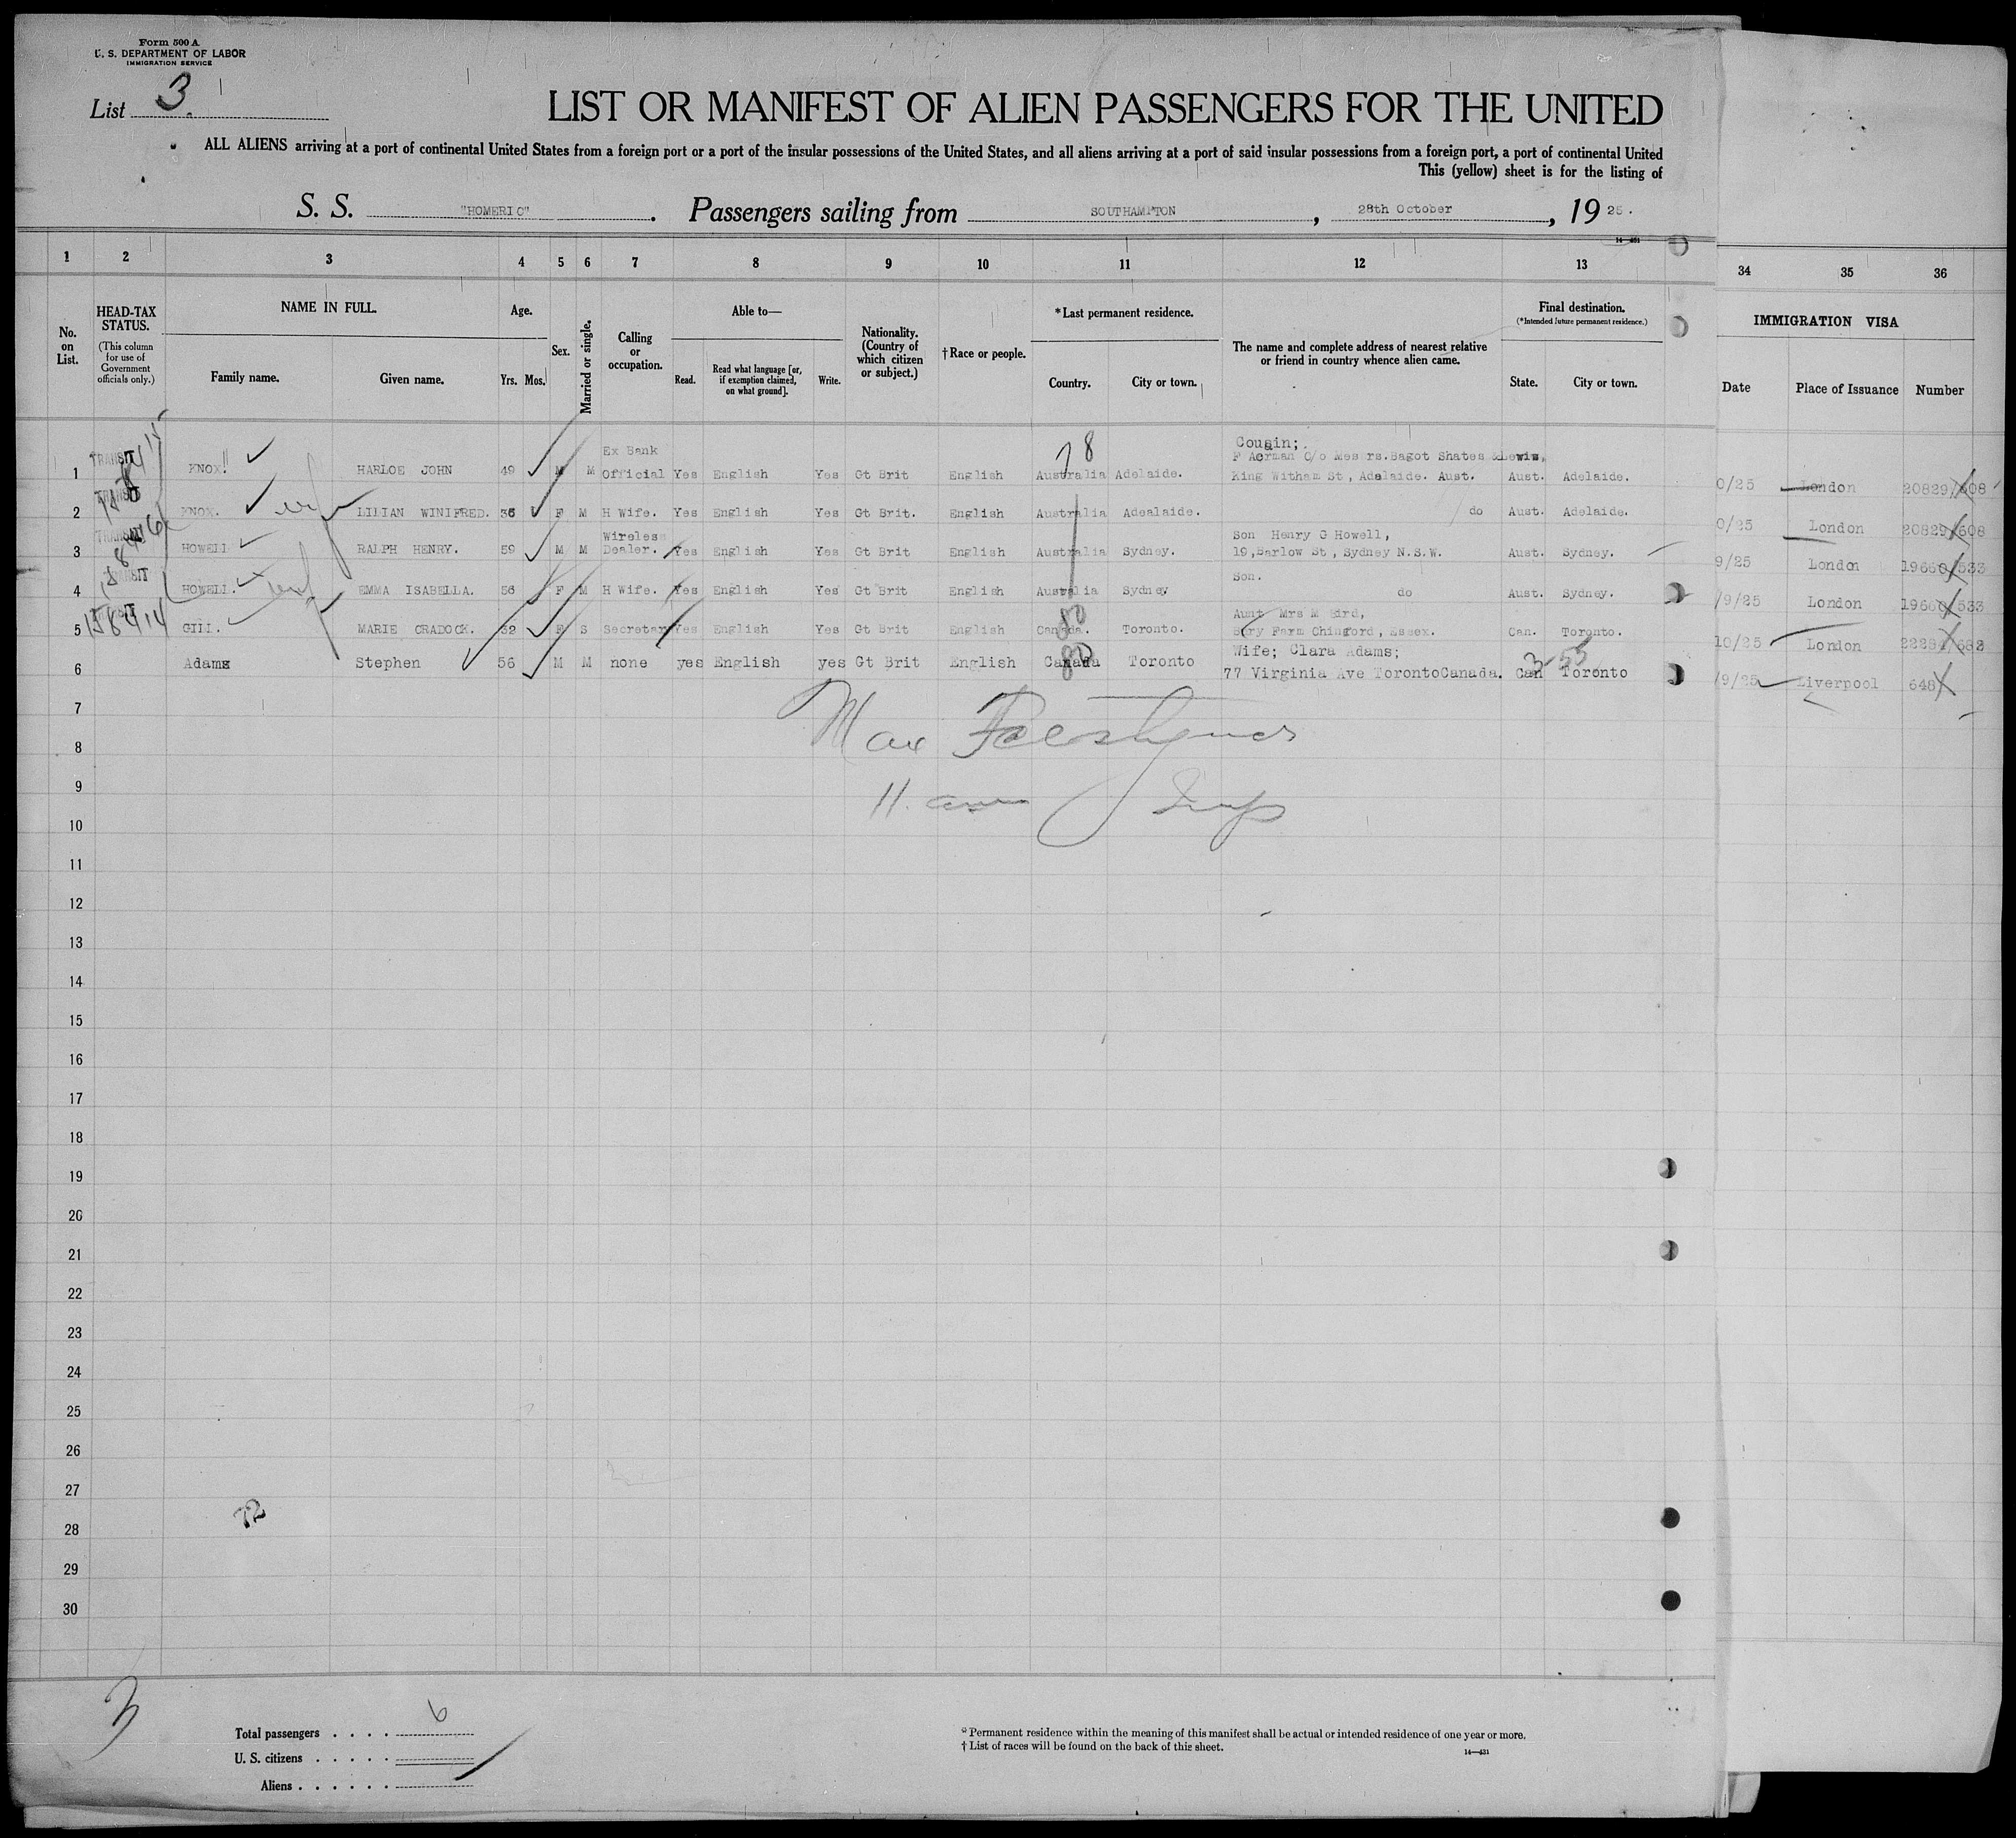 Form 500 A
U. S. DEPARTMENT OF LABOR
IMMIGRATION SERVICE
List 3.
LIST OR MANIFEST OF ALIEN PASSENGERS FOR THE UNITED
ALL ALIENS arriving at a port of continental United States from a foreign port or a port of the insular possessions of the United States, and all aliens arriving at a port of said insular possessions from a foreign port, a port of continental United
This (yellow) sheet is for the listing of
S. S. "HOMERIC". Passengers sailing from SOUTHAMPTON, 28th October, 1925.
14—431
1 2 3 4 5 6 7 8 9 10 11 12 13 34 35 36
No. on List.
HEAD-TAX STATUS.
(This column for use of Government officials only.)
NAME IN FULL.
Family name. Given name.
Age.
Yrs. Mos.
Sex.
Married or single.
Calling or occupation.
Able to—
Read. Read what language [or, if exemption claimed, on what ground]. Write.
Nationality. (Country of which citizen or subject.)
†Race or people.
*Last permanent residence.
Country. City or town.
The name and complete address of nearest relative or friend in country whence alien came.
Final destination.
(*Intended future permanent residence.)
State. City or town.
IMMIGRATION VISA
Date Place of Issuance Number
78
Cousin;
TRANSIT Ex Bank F Acrman C/o Messrs. Bagot Shates & Lewis,
1 KNOX. HARLOE JOHN 49 M M Official Yes English Yes Gt Brit English Australia Adelaide. King Witham St, Adelaide. Aust. Aust. Adelaide. 0/25 London 20829/608
TRANSIT
2 KNOX. LILIAN WINIFRED. 36 F M H Wife. Yes English Yes Gt Brit. English Australia Adealaide. do Aust. Adelaide. 0/25 London 20829/608
TRANSIT Wireless Son Henry G Howell,
3 HOWELL RALPH HENRY. 59 M M Dealer. Yes English Yes Gt Brit English Australia Sydney. 19, Barlow St, Sydney N.S.W. Aust. Sydney. 9/25 London 19660/533
TRANSIT Son.
4 HOWELL. EMMA ISABELLA. 56 F M H Wife. Yes English Yes Gt Brit English Australia Sydney do Aust. Sydney. /9/25 London 19660/533
80 Aunt Mrs M Bird,
5 GILL. MARIE CRADOCK. 32 F S Secretary Yes English Yes Gt Brit English Canada. Toronto. Bury Farm Chingford, Essex. Can. Toronto. 10/25 London
80 Wife; Clara Adams; 3-55
6 Adams Stephen 56 M M none yes English yes Gt Brit English Canada Toronto 77 Virginia Ave TorontoCanada. Can Toronto /9/25 Liverpool 648
7
8
9
10
11
12
13
14
15
16
17
18
19
20
21
22
23
24
25
26
27
28
29
30
72
3
Total passengers 6
U. S. citizens
Aliens
* Permanent residence within the meaning of this manifest shall be actual or intended residence of one year or more.
† List of races will be found on the back of this sheet.
14—431